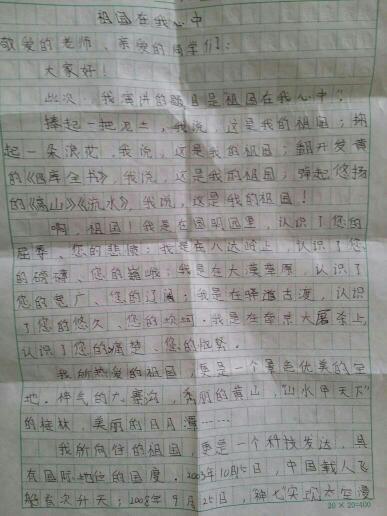 祖国在我心中
敬爱的老师、亲爱的同学们:
大家好!
此次,我演讲的题目是"祖国在我心中"。
捧起一把泥土,我说,这是我的祖国;掬
起一朵浪花,我说,这是我的祖国;翻开发黄
的《四库全书》,我说,这是我的祖国;弹起悠扬
的《高山》《流水》,我说,这是我的祖国!
啊,祖国!我是在圆明园里,认识了您的
屈辱、您的悲愤;我是在八达岭上,认识了您
的磅礴、您的巍峨;我是在大漠草原,认识了
您的宽广、您的辽阔;我是在驿道古渡,认识
了您的悠久、您的坎坷。我是在南京大屠杀上,
认识了您的痛楚、您的
我所热爱的祖国,更是一个景色优美的宝
地。神气的九寨沟,秀丽的黄山,"山水甲天下"
的桂林,美丽的日月潭……
我所向往的祖国,更是一个科技发达,具
有国际地位的国度。2003年10月15日,中国载人飞
船首次升天;2008年9月25日,"神七"实现太空漫
20×20=400